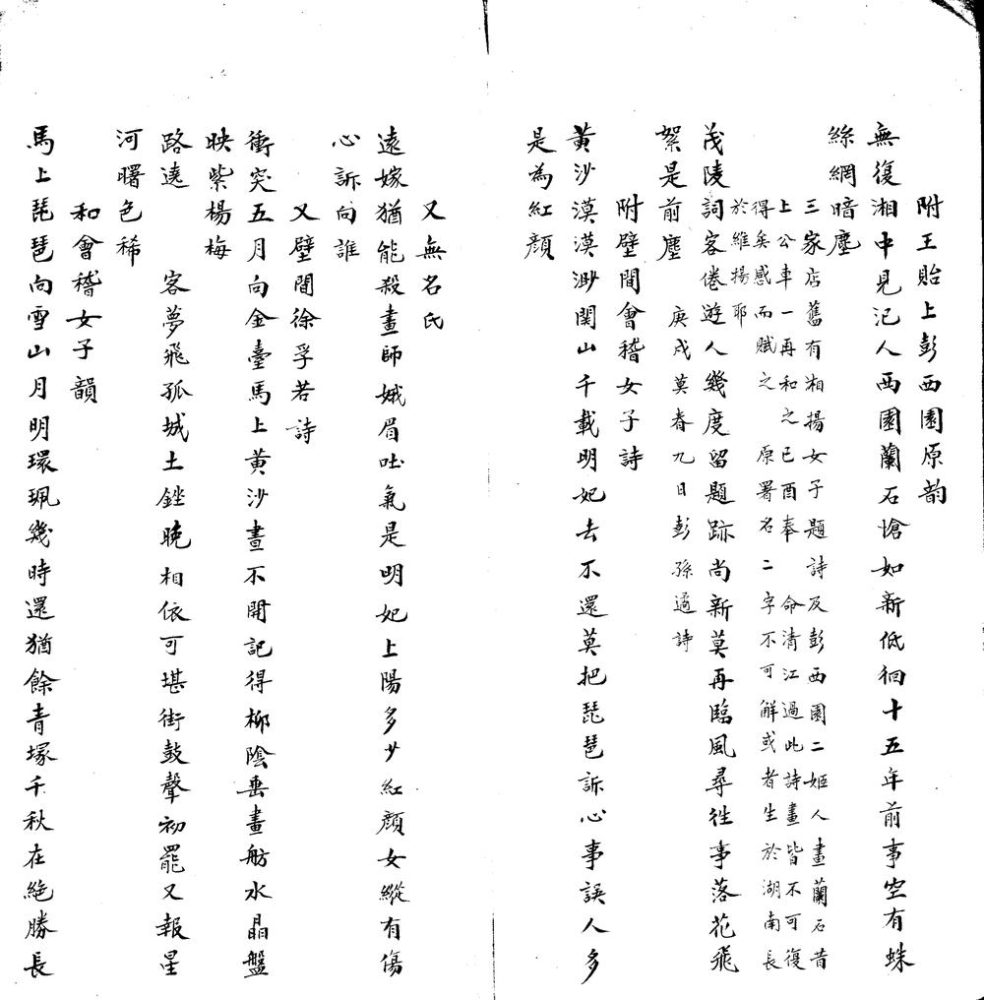 附王貽上彭西園原韵
無復湘中見汜人西園蘭石愴如新低徊十五年前事空有蛛
絲網暗塵
三家店舊有湘揚女子題詩及彭西園二姬人畫蘭石昔
上公車一再和之已酉奉命清江過此詩畫皆不可復
得矣感而賦之原署名二字不可解或者生於湖南長
於維揚耶
茂陵詞客倦遊人幾度留題跡尚新莫再臨風尋徃事落花飛
絮是前塵
庚戌莫春九日彭孫遹詩
附壁間會稽女子詩
黃沙漠漠渺関山千載明妃去不還莫把琵琶訴心事誤人多
是為紅顔
又無名氏
遠嫁猶能殺畫師娥眉吐氣是明妃上陽多少紅顔女縱有傷
心訴向誰
又壁間徐孚若詩
衝突五月向金臺馬上黄沙晝不開記得柳陰垂畫舫水晶盤
映紫楊梅
客夢飛孤城土銼晚相依可堪街鼓聲初罷又報星
路遶
河曙色稀
和會稽女子韻
馬上琵琶向雪山月明環珮幾時還猶餘青塚千秋在絶勝長